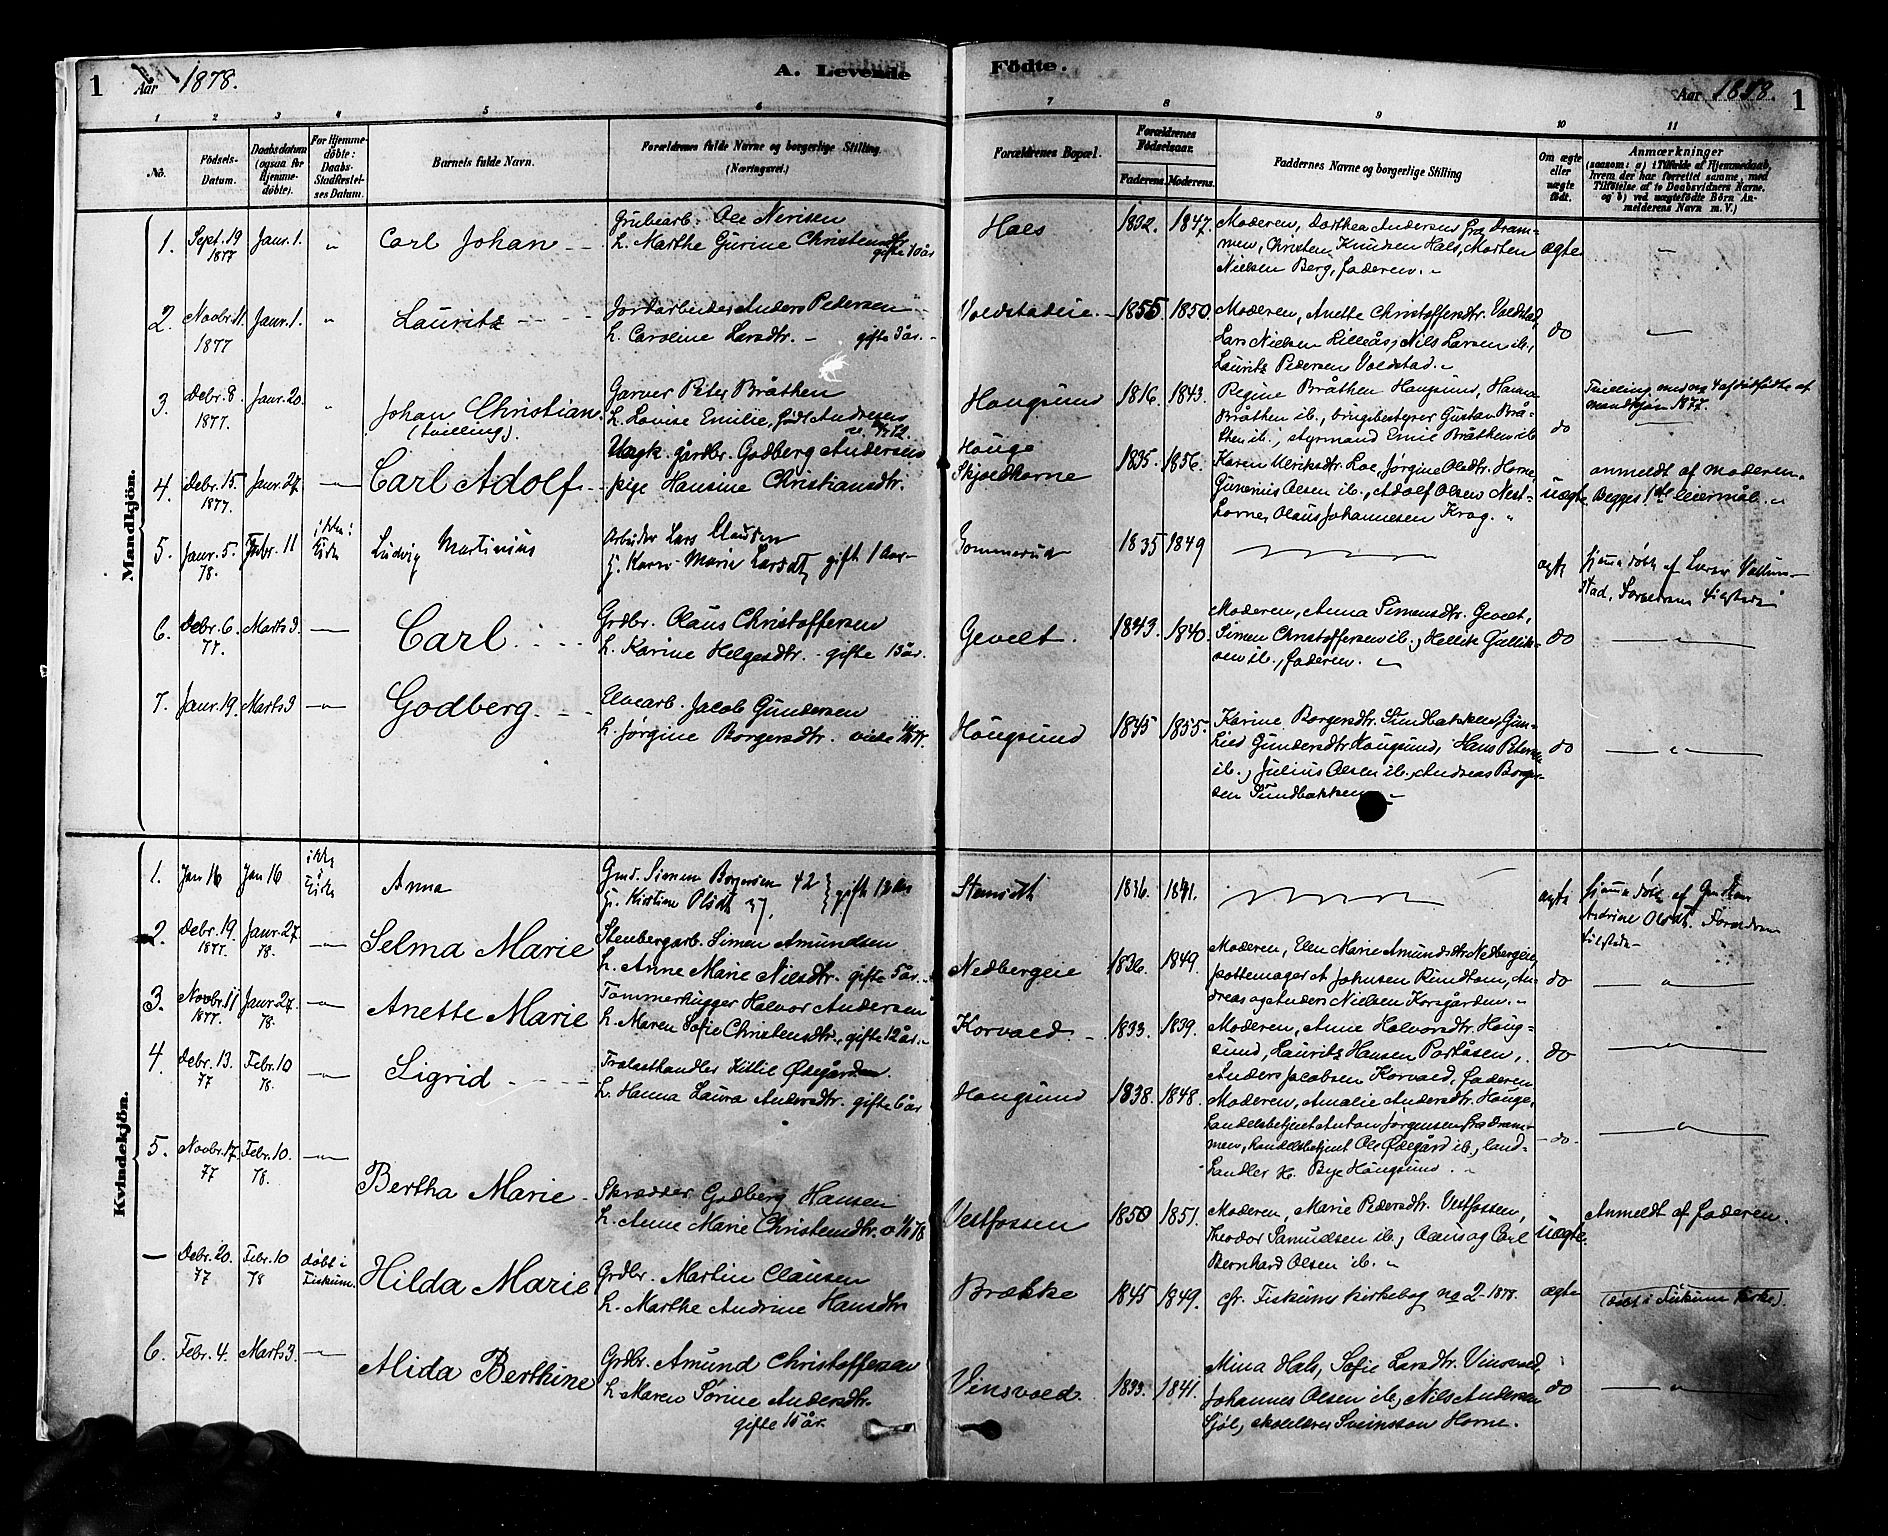 1 Aar 1878. A. Levende Födte. Aar 1878. 1
1 2 3 4 5 6 7 8 9 10 11
No.
Födsels-
Datum.
Daabsdatum
(ogsaa for
Hjemme-
döbte).
For Hjemme-
döbte:
Daabs-
Stadfæstel-
ses Datum.
Barnets fulde Navn.
Forældrenes fulde Navne og borgerlige Stilling
(Næringsvei.)
Forældrenes Bopæl.
Forældrenes
Födselsaar.
Faderens. Moderens.
Faddernes Navne og borgerlige Stilling
Om ægte
eller
uægte
födt.
Anmærkninger
(saasom: a) i Tilfælde af Hjemmedaab,
hvem der har forrettet samme, med
Tilföielse af to Daabsvidners Navne.
og b) ved uægtefödte Börn An-
melderens Navn m. V.)
Mandkjön.
1. Sept. 19
1877
Janr. 1. "
Carl Johan
Grubearb. Ole
H. Marthe Gurine Christensdtr
gifte 10 år
Hals
1832. 1847.
Moderen, Dorthea Andersen fra Dram-
men, Christen Knudsen Hals, Morten
Nielsen Berg, faderen. "
ægte
2. Novbr. 11
1877
Janr. 1. "
Lauritz
Jordarbeider Anders Pedersen
H. Caroline Larsdtr. - gifte 3 år.
Voldstadeie.
1855 1850.
Moderen, Anette Christoffersdtr. Voldstad,
Lars Nielsen Lilleås, Nils Larsen ib.,
Lauritz Pedersen Voldstad.
do
3. Debr. 8
1877.
Janr. 20. "
Johan Christian
(tvilling).
Garver Peter Bråthen
H. Lovise Emilie, født Andresen
Hougsund
1816. 1843.
Regine Bråthen Hougsund, Hanna
Bråthen ib., brugsbestyrer Gustav Brå-
then ib., styrmand Emil Bråthen ib
do
Tvilling med no 4 af dødfødte af
mandkjøn 1877.
4. Debr. 15.
1877.
Janr. 27.
Carl Adolf
Ungk. gårdbr. Godberg Andersen
pige Hansine Christiansdtr.
Houge
Skjoldhorne
1835. 1856.
Karen Ulriksdtr. Loe, Jørgine Olsdtr. Horne,
Gunerius Olsen ib., Adolf Olsen Nest-
horne, Olaus Johannesen Krog. "
uægte
anmeldt af moderen.
Begges 1ste leiermål. "
5. Janr. 5.
78.
Febr. 11
Ludvig Martinius
Arbeider Lars Clausen
H. Karen Marie Larsdt gifte 1 Aar
Gommerud
1835 1849
ægte
6. Debr. 6.
77.
Marts 3.
Carl
Grdbr. Olaus Christoffersen
H. Karine Helgesdtr. - gifte 13 år.
Gevelt.
1843. 1840.
Moderen, Anna Simensdtr. Gevelt,
Simen Christoffersen ib., Hellik Gullik-
sen ib., faderen. "
do
7. Janr. 19. Marts 3
Godberg
Elvearb. Jacob Gundersen
H. Jørgine Borgersdtr. viede
Hougsund
1845 1855.
Karine Borgersdtr. Sundbakken, Gun-
hild Gundersdtr Hougsund, Hans Petersen
ib., Julius Olsen ib., Andreas Borger-
sen Sundbakken.
do
Kvindekjön.
1. Jan 16 Jan 16
Anna
Gmd. Simen Borgersen 42
H. Kirstine Olsdt 37. } gifte 12 Aar
Stensrudt
1836. 1841.
ægte
2. Debr. 19.
1877.
Janr. 27.
78.
Selma Marie
Stenbergarb. Simen Amundsen
H. Anne Marie Nilsdtr. gifte 5 år.
Nedbergeie
1836. 1849.
Moderen, Elen Marie Amundsdtr Nedbergeie,
pottemager A Johnsen Rundtom, An-
dreas og Anders Nielsen Korsgården. "
do
3. Novbr. 11
1877.
Janr. 27.
78.
Anette Marie
Tømmerhugger Halvor Andersen
H. Maren Sofie Christensdtr., gifte 12 år.
Korvald.
1833. 1839.
Moderen, Anne Halvorsdtr. Houg-
sund, Laurits Hansen Portåsen,
Anders Jacobsen Korvald, faderen
do
4. Debr. 13.
77
Febr. 10
78.
Sigrid
Trælasthandler Kittil Ødegården.
H. Hanna Laura Andersdtr. gifte 6 år
Hougsund
1838. 1848.
Moderen, Amalie Andersdtr. Houge,
handelsbetjent Anton Jørgensen fra Dram-
men, handelsbetjent Ole Ødegård ib., land-
handler H. Bye Hougsund.
do.
5. Novbr. 17
77
Febr. 10.
78.
Bertha Marie
Skrædder Godberg Hansen
H. Anne Marie Christensdtr.
Vestfossen
1850 1851.
Moderen, Marie Pedersdtr. Vestfossen,
Theodor Samuelsen ib., Olens og Carl
Bernhard Olsen ib. "
uægte.
Anmeldt af faderen.
— Debr. 20.
77
Febr. 10
78
døbt i
Fiskum.
Hilda Marie
Grdbr. Martin Clausen
H. Marthe Andrine Hansdtr
Brække
1845 1849.
cfr. Fiskums kirkebog no 2 - 1878.
ægte
(døbt i Fiskum kirke).
6. Febr. 4. Marts 3.
Alida Berthine
Grdbr. Amund Christoffersen
H. Maren Sørine Andersdtr.
gifte 15 år.
Vinsvold.
1833. 1841.
Mina Hals, Sofie Larsdtr. Vinsvold,
Johannes Olsen ib., Nils Andersen
Sjøl, skolelærer Sveinsson Horne.
do